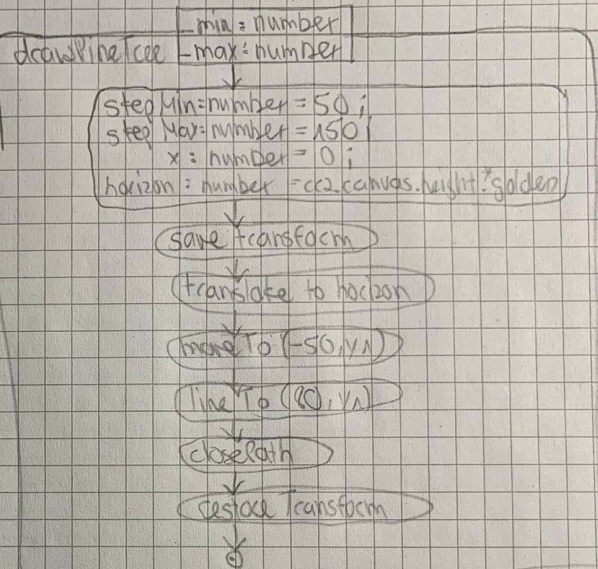 _min: number
drawPineTree _max: number
stepMin: number = 50;
stepMax: number = 150;
x: number = 0;
horizon: number = crc2.canvas.height * golden
save transform
translate to horizon
moveTo (-50, y1)
lineTo (80, y1)
closePath
restore Transform